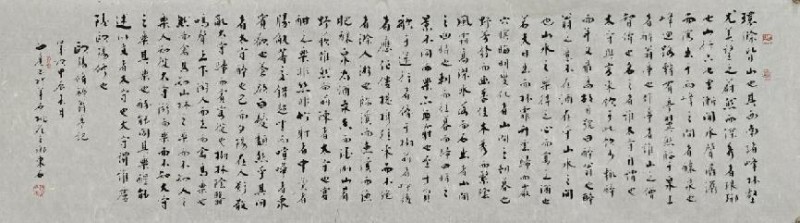 環滁皆山也其西南諸峰林壑
尤美望之蔚然而深秀者琅琊
也山行六七里漸聞水聲潺潺
而瀉出于兩峰之間者釀泉也
峰迴路轉有亭翼然臨于泉上
者醉翁亭也作亭者誰山之僧
智僊也名之者誰太守自謂也
太守與客來飲于此飲少輒醉
而年又最高故自號曰醉翁也醉
翁之意不在酒在乎山水之間
也山水之樂得之心而寓之酒也
若夫日出而林霏開雲歸而巖
穴暝晦明變化者山間之朝暮也
野芳發而幽香佳木秀而繁陰
風霜高潔水落而石出者山間
之四時也朝而往暮而歸四時之
景不同而樂亦無窮也至于負者
歌于途行者休于樹前者呼後
者應傴僂提攜往來而不絕
者滁人游也臨溪而漁溪深而魚
肥釀泉為酒泉香而酒洌山肴
野蔌雜然而前陳者太守宴也宴
酣之樂非絲非竹射者中奕者
勝觥籌交錯起坐而諠譁者衆
賓歡也蒼顏白髮頹然乎其間
者太守醉也已而夕陽在山人影散
亂太守歸而賓客從也樹林陰翳
鳴聲上下游人去而禽鳥樂也
然而禽鳥知山林之樂而不知人之
樂人知從太守游而樂而不知太守
之樂其樂也醉能同其樂醒能
述以文者太守也太守謂誰廬
陵歐陽修也
歐陽修醉翁亭記